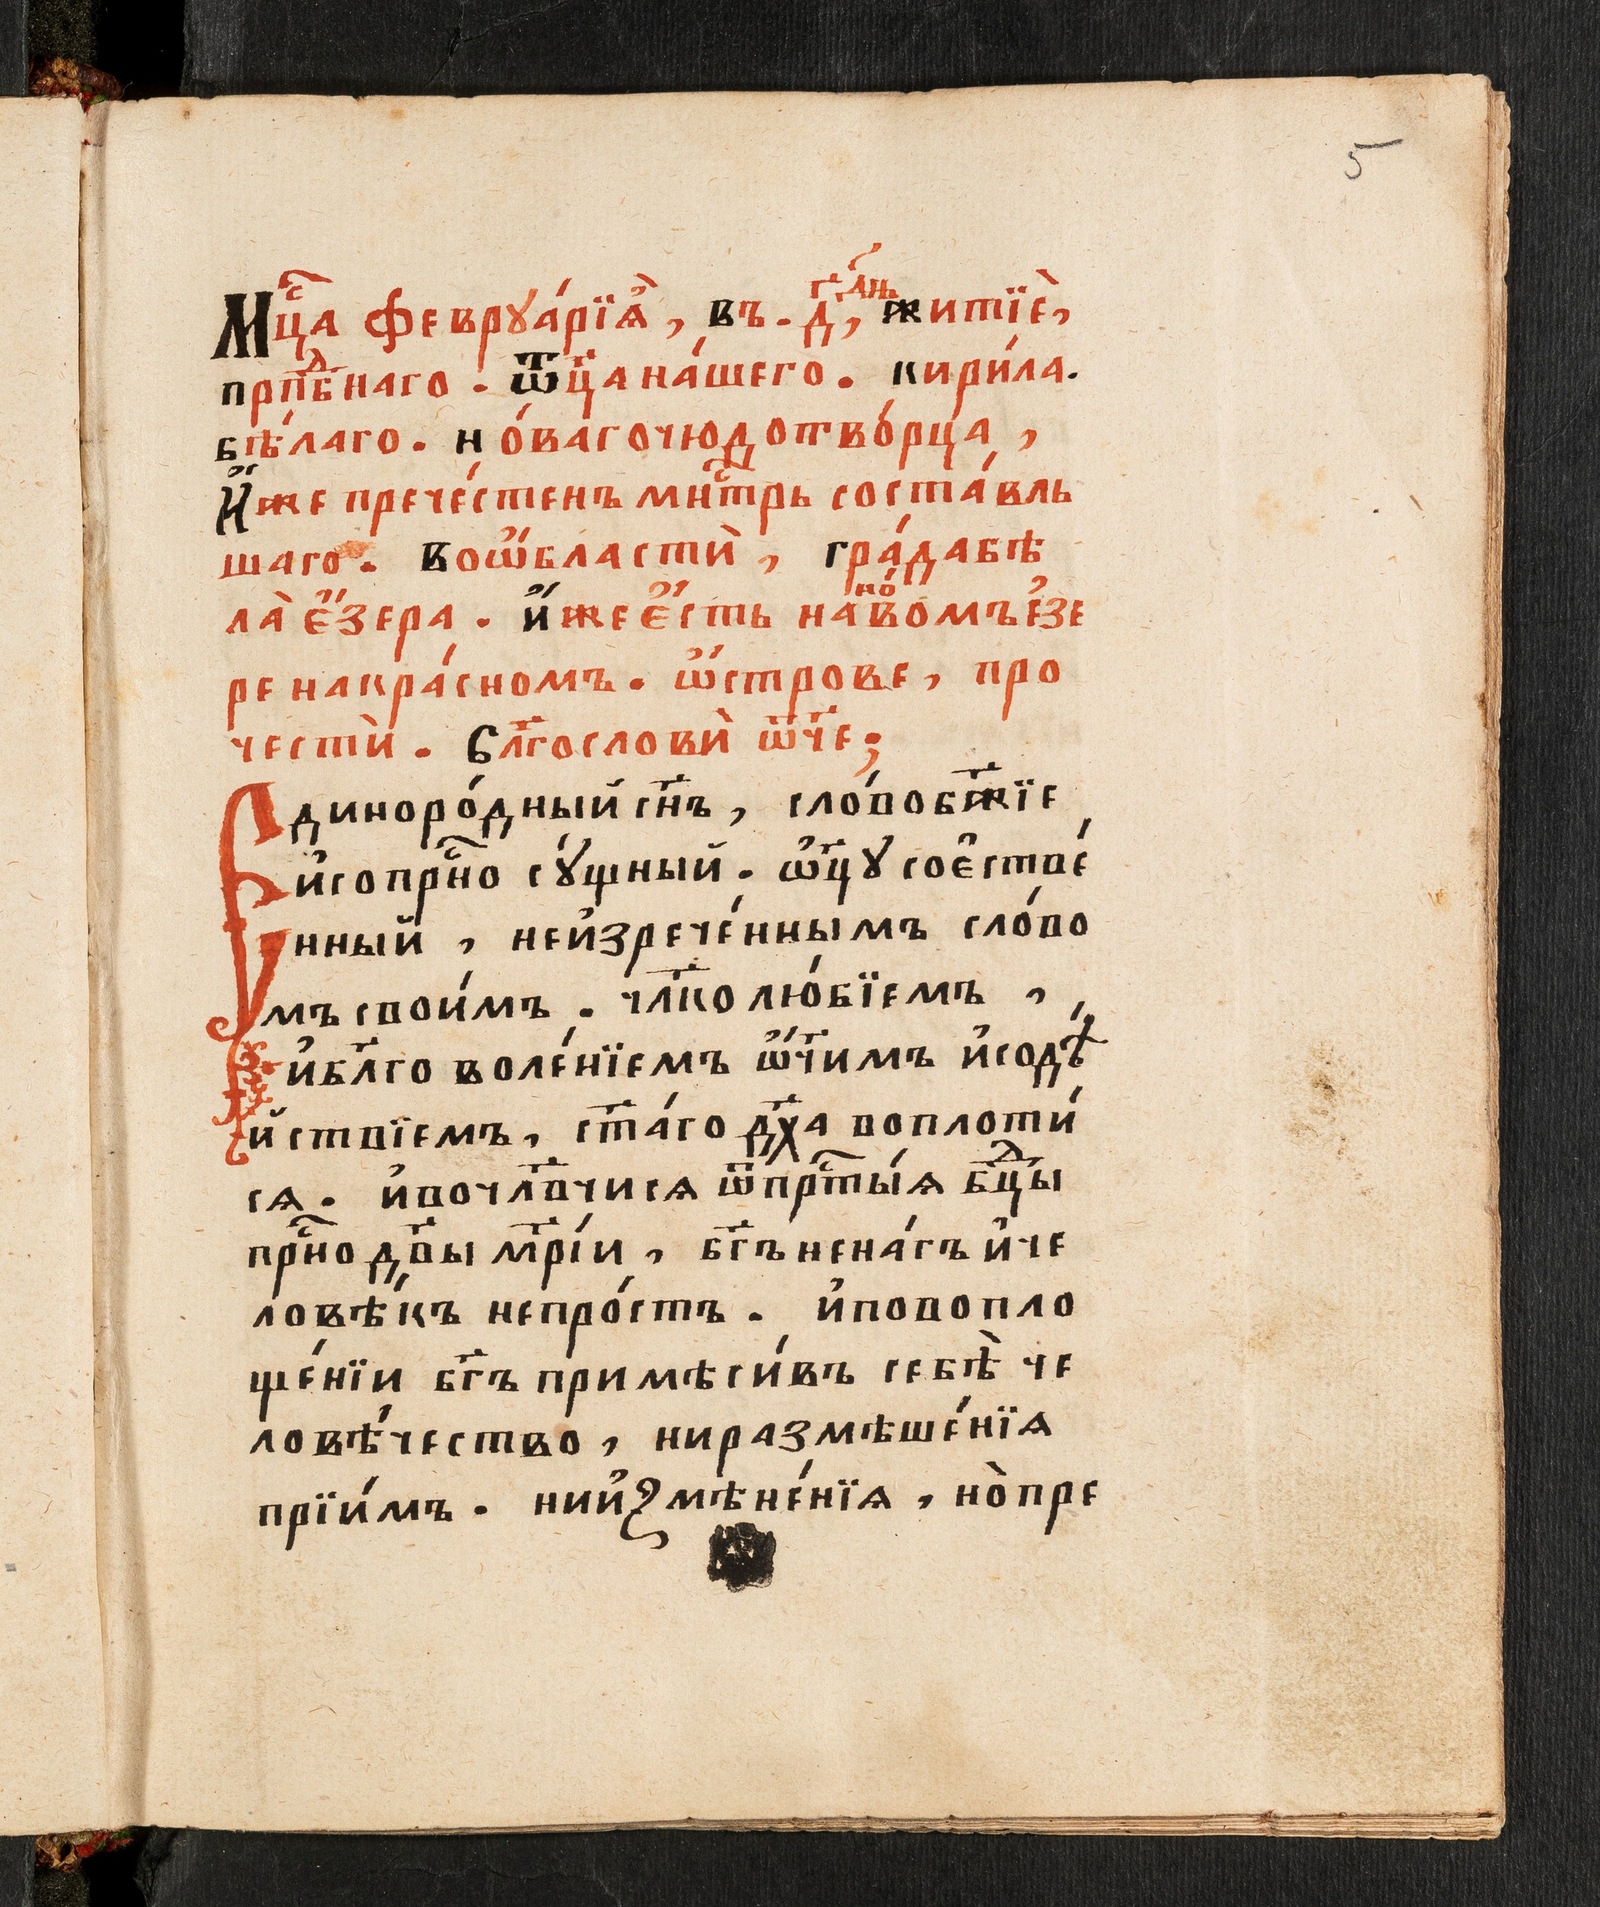 5
Мц҃а феврꙋа́рїѧ̀, въ. д҃, дн҃ь житїѐ,
прпⷣбнаго. ѿц҃а на́шего. кири́ла.
бѣ́лаго. но́ваго чюдотво́рца,
И҆́же пречестенъ мнⷭ҇трь соста́вль
шаго. воѡ҆́бластѝ, гра́да бѣ
ла̀ є҆́зера. и҆́же є҆́сть на но́вомъ е҆зе
ре на кра́сномъ. ѡ҆́строве, про
честѝ. Блг҃ословѝ ѿч҃е;
Единоро́дный сн҃ъ, сло́во бж҃їе
и҆ сопрⷭ҇но сꙋ́щный. ѡ҆ц҃ꙋ соє҆стве́
нный, неи҆зрече́ннымъ сло́во
мъ свои́мъ. чл҃колю́бїемъ,
и҆ блг҃оволе́нїемъ ѡ҆́ч҃имъ и҆ содѣ́
йствїемъ, ст҃а́го дх҃а воплоти́
сѧ. и҆ вочлв҃чисѧ ѿ прⷭ҇ты́ѧ бцⷣы
прⷭ҇но дв҃ы мр҃і́и, бг҃ъ нена́гъ и҆ че
ловѣ́къ непро́стъ. и҆ по вопло
ще́нїи бг҃ъ примѣси́въ себѣ̀ че
ловѣ́чество, ни размѣше́нїѧ
прїи́мъ. ни и҆змѣне́нїѧ, но̀ пре